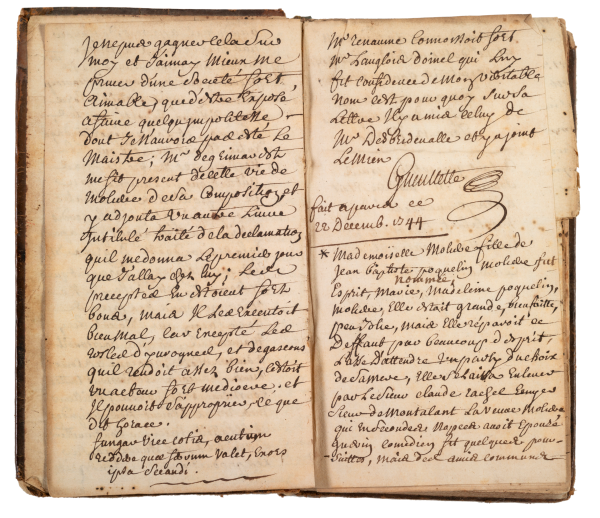 Je ne pus gagner cela sur
moy et J'aimay Mieux Me
priver d'une Societé fort
Aimable, que d'estre Exposé
a faire quelqu'impolitesse
dont Je N'aurois pas esté Le
Maistre; Mr de grimarest
me fit present de cette vie de
moliere de sa Composition, et
y adjouta un autre Livre
Intitulé traité de la declamation
qu'il me donna le premier jour
que J'allay chez luy; Les
preceptes En estoient fort
bons, mais Il Les Executoit
bien mal, a Excepté Les
rolles d'yvrognes, et de gascons
qu'il rendoit assez bien, c'estoit
un acteur fort mediocre, et
Il pouvoit s'approprier ce que
dit horace.
fungar vice cotis, acutum
reddere quæ ferrum valet, Exors
ipsa secandi.
Mr renaume Connoissoit fort
Mr Langlois doinel qui Luy
fit confidence de Mon veritable
Nom c'est pourquoy sur sa
Lettre Il y a mis celuy de
Mr et j'y ay joint
Le Mien
Gueullette
fait a paris ce
22 Decemb. 1744
* Mademoiselle Moliere fille de
Jean baptiste poquelin moliere fut
nommée
Esprit, Marie, Madeleine poquelin,
moliere, Elle estoit grande, bien faitte,
peu Jolie, Mais Elle reparoit ce
Deffaut par beaucoup d'esprit,
Lasse d'attendre Un party du choix
de sa mere, Elle se laissa Enlever
par Le Sieur claude rachel Ecuyer
Sieur de Montalant La veuve Moliere
qui En Secondes Nopces avoit Epousé
guerin comedien fit quelques pour-
suittes, mais des amis communs